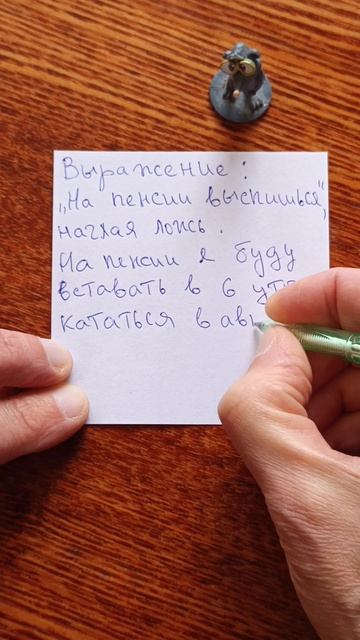 Выражение:
„На пенсии выспишься",
наглая ложь.
На пенсии я буду
вставать в 6
кататься в ав